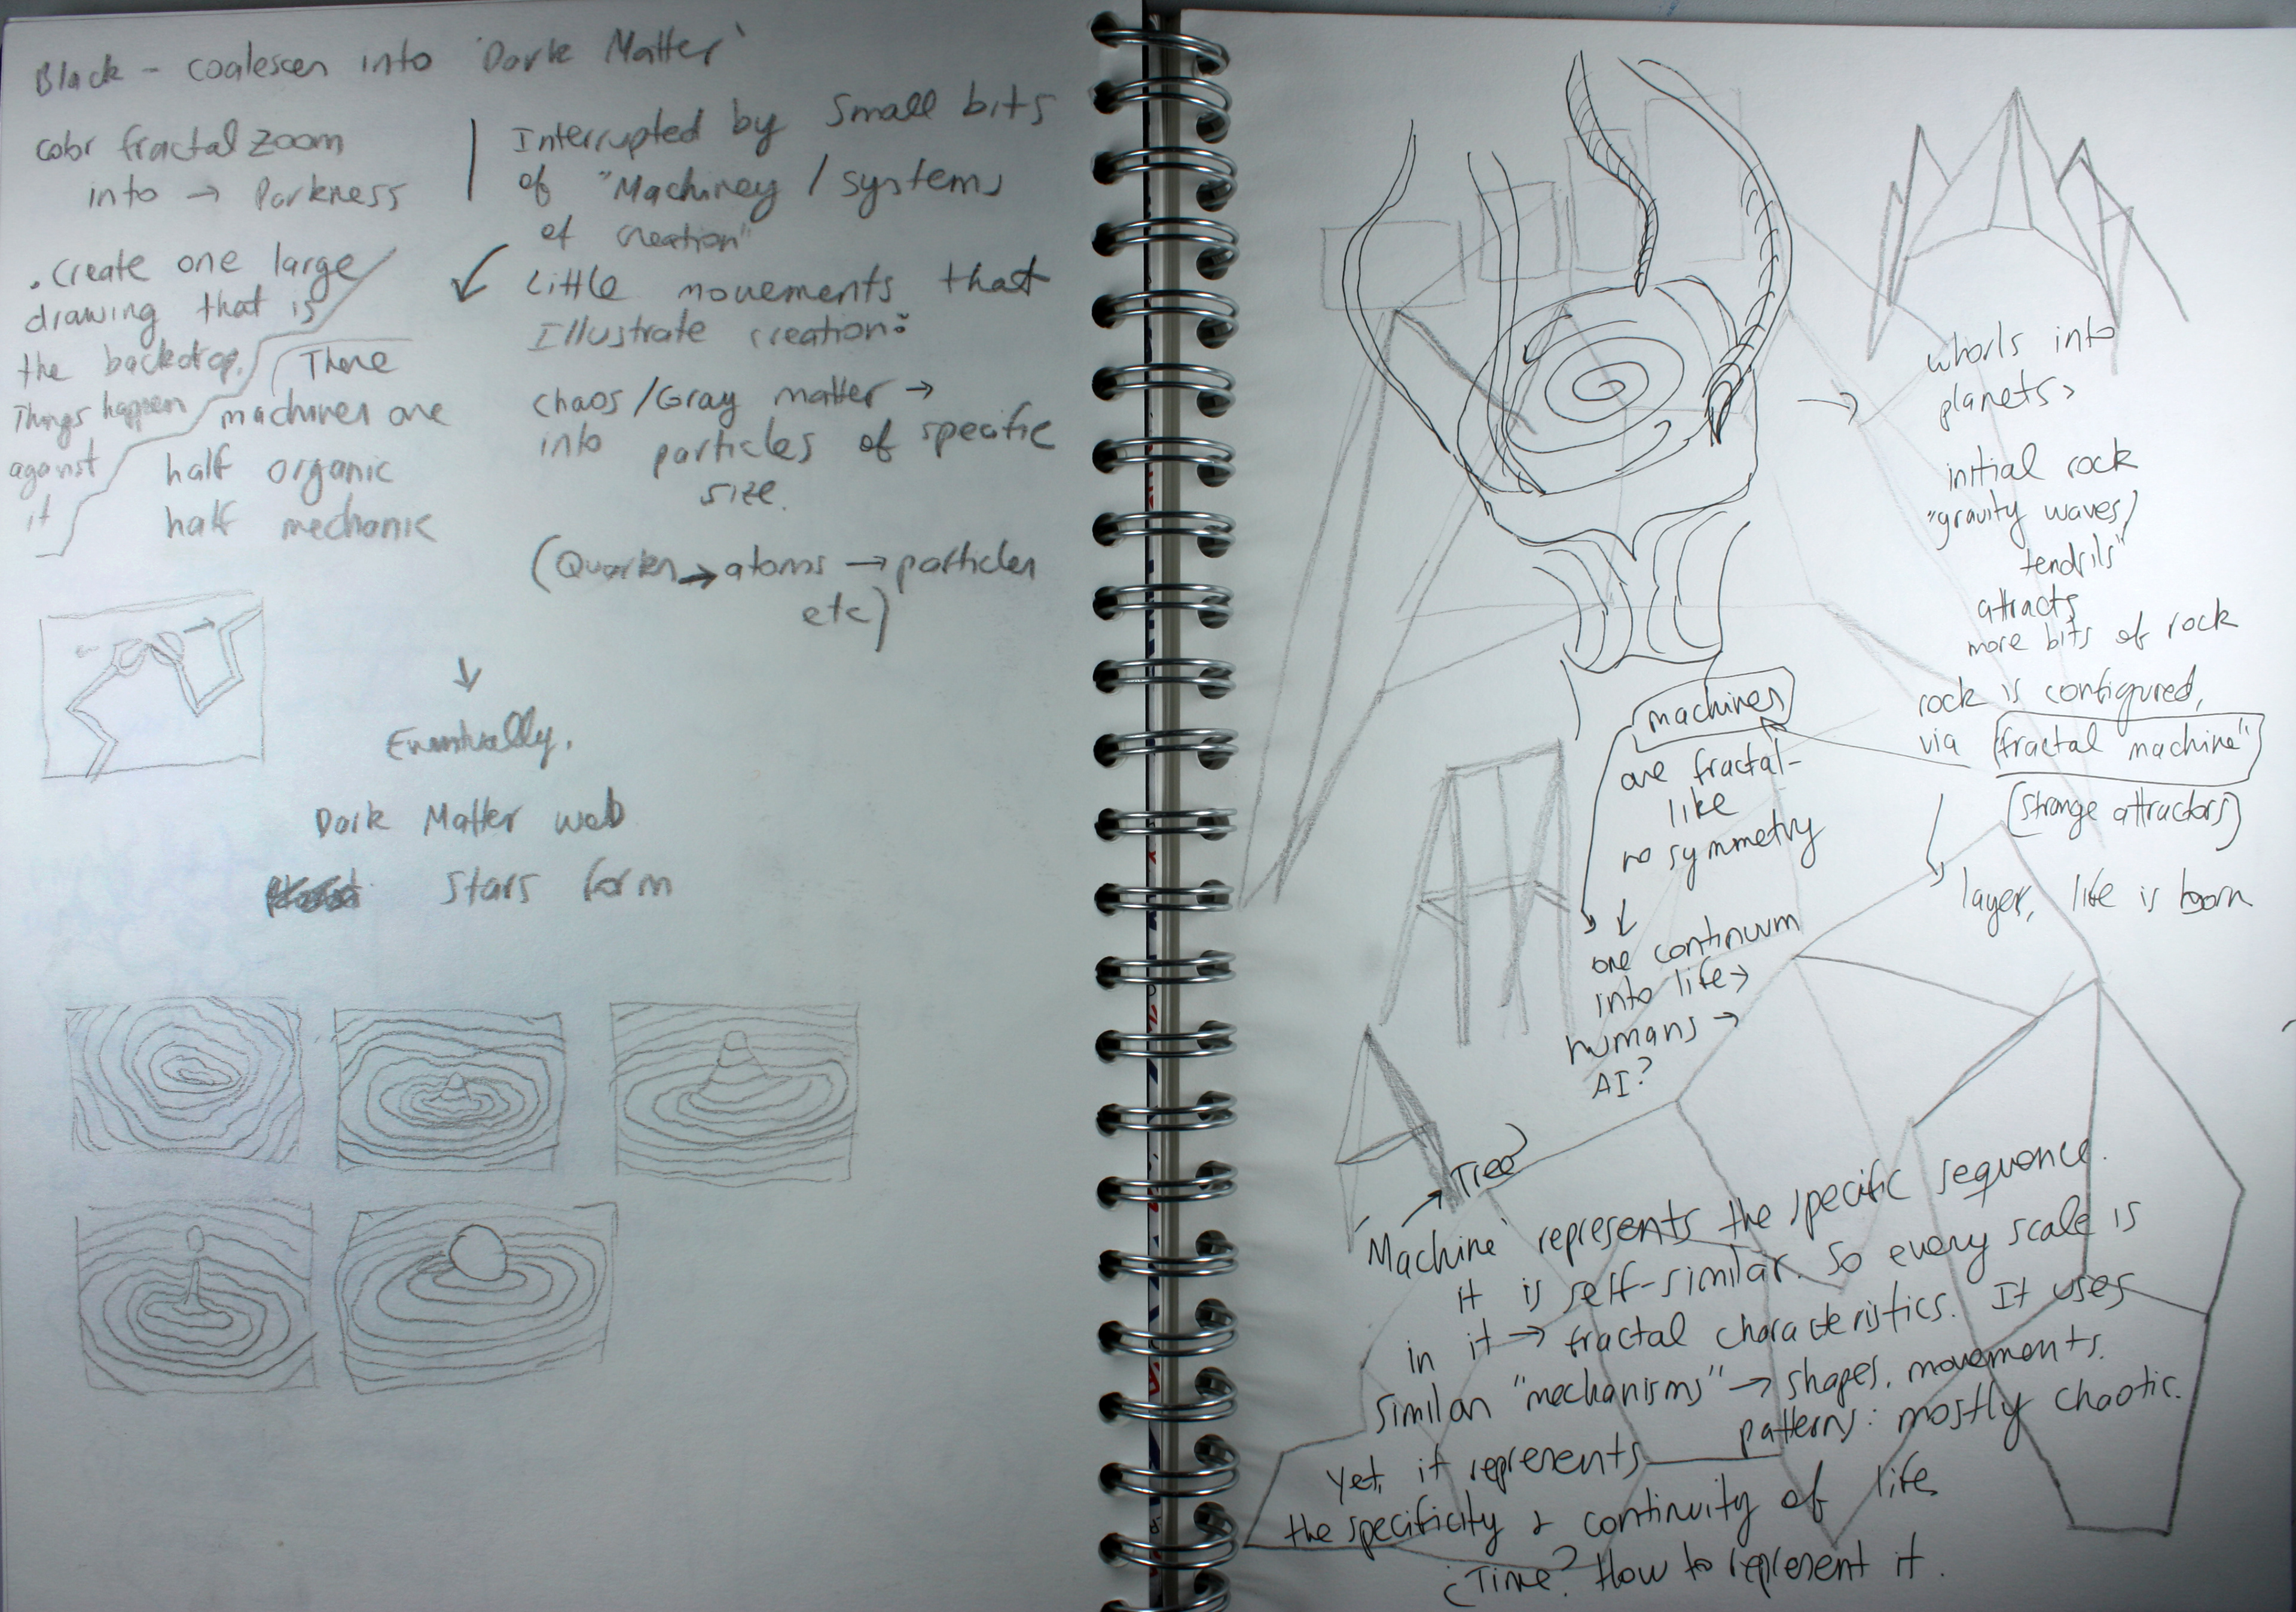 Black - coalesces into 'Dark Matter'
color fractal zoom
into → Darkness
. create one large
drawing that is
the backdrop.
Things happen
against
it
These
machines are
half organic
half mechanic
Interrupted by small bits
of "Machinery / systems
of creation"
Little movements that
Illustrate creation:
chaos/Gray matter →
into particles of specific
size.
(Quarks → atoms → particles
etc)
Eventually,
Dark Matter web
stars form
whorls into
planets>
initial rock
"gravity waves/
tendrils"
attracts
more bits of rock
rock is configured,
via "fractal machine"
(strange attractors)
layer, life is born
machines
are fractal-
like
no symmetry
↓
one continuum
into life→
humans →
AI?
→ Tree
'Machine' represents the specific sequence.
it is self-similar. So every scale is
in it → fractal characteristics. It uses
similar "mechanisms" → shapes, movements.
patterns: mostly chaotic.
Yet, it represents
the specificity & continuity of life
¿Time? How to represent it.